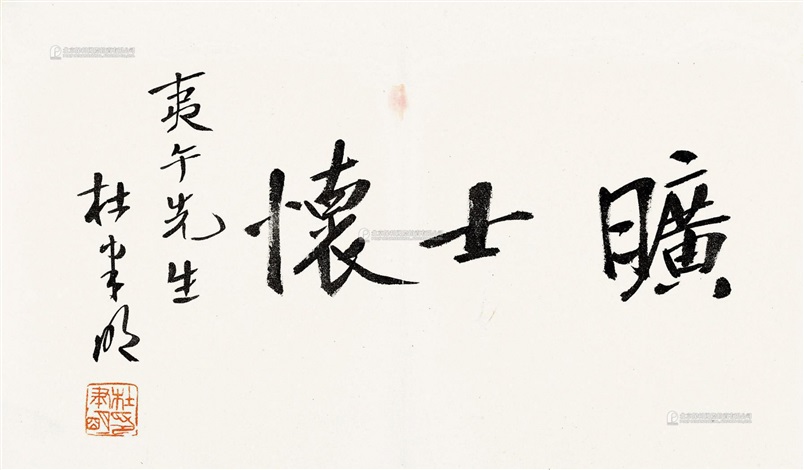 曠士懷
夷午先生
杜聿明
杜印聿明